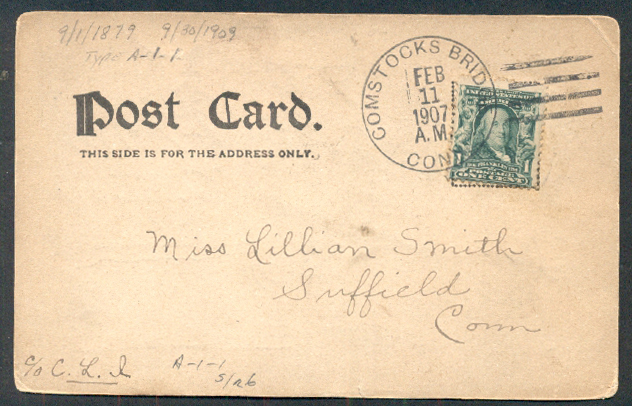 9/1/1879 9/30/1909
Type A-1-1
Post Card.
THIS SIDE IS FOR THE ADDRESS ONLY.
COMSTOCKS BRID
FEB
11
1907
A.M.
CON
POSTAGE
ONE CENT
Miss Lillian Smith
Suffield
Conn
c/o C. L. I
A-1-1